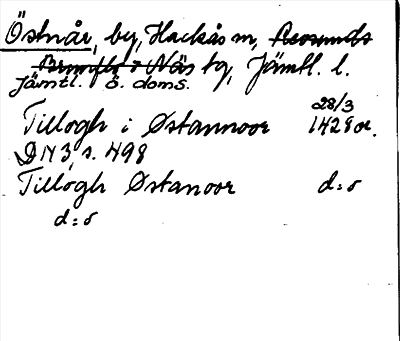 Östnår, by, Hackås sn,
Brunflo o Näs tg, Jämtl. l.
Jämtl. ö. doms.
28/3
Tillogh i Østannoor 1428 or.
DN 3, s. 498
Tillogh Østanoor d:o
d:o